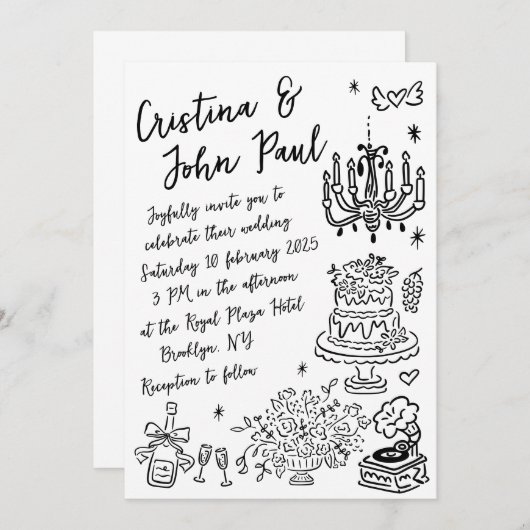 Cristina &
John Paul
Joyfully invite you to
celebrate their wedding
Saturday 10 february 2025
3 PM in the afternoon
at the Royal Plaza Hotel
Brooklyn, NY
Reception to follow